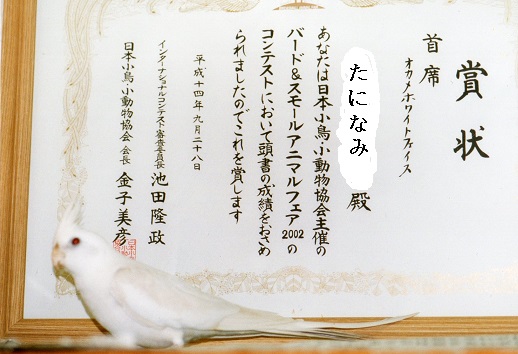 賞状
首席
オカメホワイトフェイス
たになみ 殿
あなたは日本小鳥・小動物協会主催の
バード&スモールアニマルフェア2002の
コンテストにおいて頭書の成績をおさめ
られましたのでこれを賞します
平成十四年九月二十八日
インターナショナルコンテスト審査委員長 池田隆政
日本小鳥・小動物協会会長 金子美彦